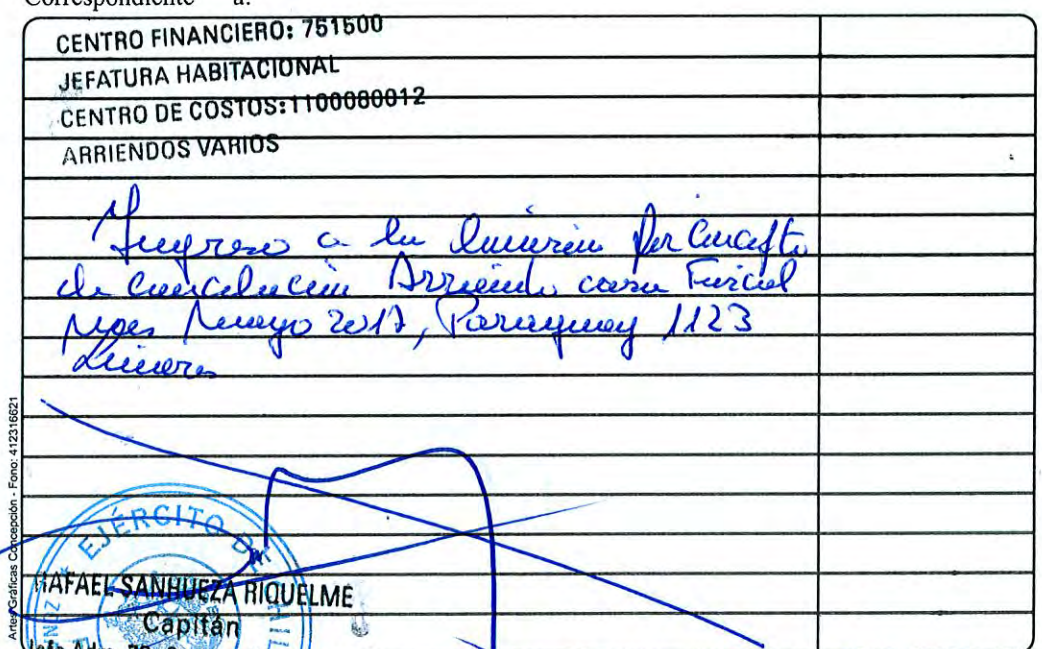 Correspondiente a:
CENTRO FINANCIERO: 751500
JEFATURA HABITACIONAL
CENTRO DE COSTOS: 1100080012
ARRIENDOS VARIOS
Ingreso a la por Concepto
de cancelación Arriendo casa Fiscal
mes Mayo 2017, Paraguay 1123
Linares
Artes Gráficas Concepción - Fono: 412316621
EJÉRCITO DE
RAFAEL SANHUEZA RIQUELME
Capitán